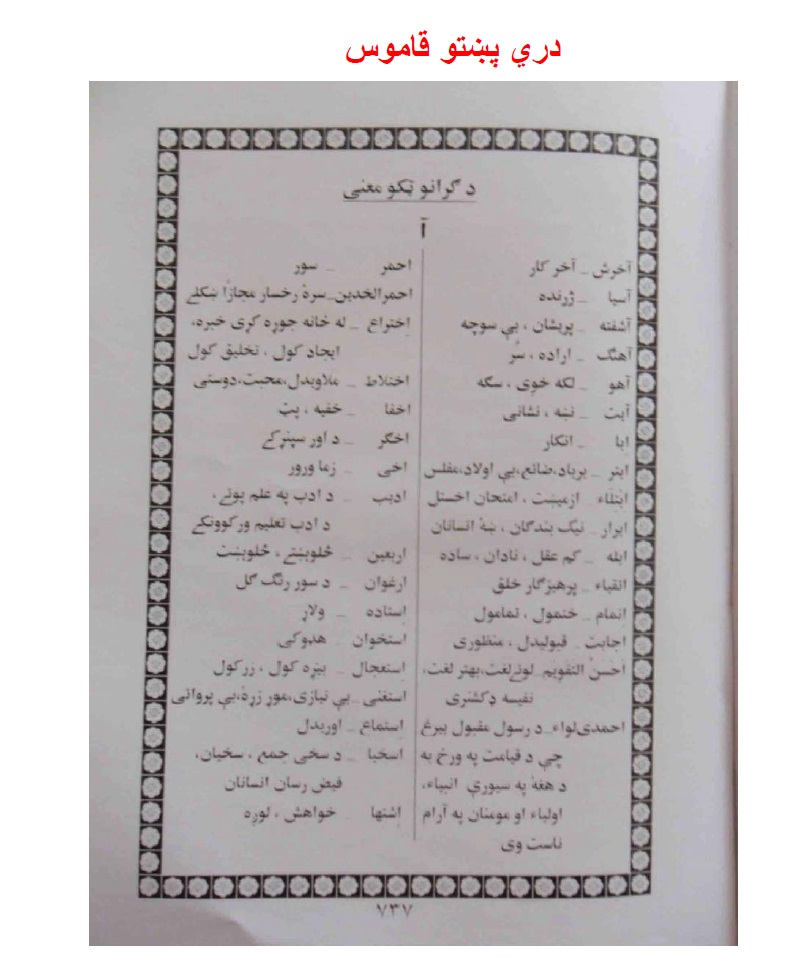 دري پښتو قاموس
د ګرانو ټکو معنی
آ
آخرش _ آخر کار
آسیا _ ژرنده
آشفته _ پریشان ، بې سوچه
آهنګ _ اراده ، سُر
آهو _ لکه خوی ، سګه
آیت _ نښه ، نشانی
ابا _ انکار
ابتر _ برباد،ضائع،بې اولاد،مفلس
ابتلاء _ ازمیښت ، امتحان اخستل
ابرار _ نیک بندګان ، ښهٔ انسانان
ابله _ کم عقل ، نادان ، ساده
اتقیاء _ پرهیزګار خلق
اتمام _ ختمول ، تمامول
اجابت _ قبولیدل ، منظوری
احسنُ التقویم _ لوئےلغت،بهتر لغت،
نفیسه ډکشنری
احمدی‌لواء _ د رسول مقبول بیرغ
چې د قیامت په ورځ به
د هغهٔ په سیورې انبیاء،
اولیاء او مومنان په آرام
ناست وی
احمر _ سور
احمرالخدین _ سرهٔ رخسار مجازاً ښکلے
اختراع _ له ځانه جوړه کړی خبره،
ایجاد کول ، تخلیق کول
اختلاط _ ملاویدل،محبت،دوستی
اخفا _ خفیه ، پټ
اخګر _ د اور سپڼرکے
اخی _ زما ورور
ادیب _ د ادب په علم پوئے،
د ادب تعلیم ورکوونکے
اربعین _ څلویښتے ، څلویښت
ارغوان _ د سور رنګ ګل
استاده _ ولاړ
استخوان _ هډوکی
استعجال _ بیړه کول ، زر کول
استغنی _ بې نیازی،موړ زړهٔ،بې پروائی
استماع _ اوریدل
اسخیا _ د سخی جمع ، سخیان،
فیض رسان انسانان
اشتها _ خواهش ، لوږه
۷۳۷